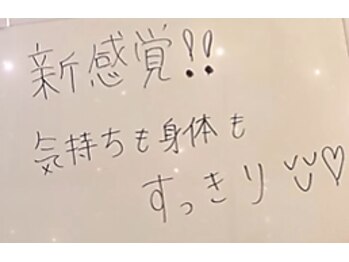 新感覚!!
気持ちも身体も
すっきり♡